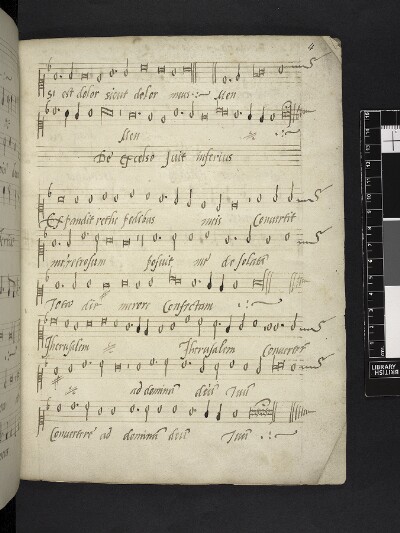 4
Si est dolor sicut dolor meus :~ Men
Men
De excelso fuit inferius
Expandit rethe pedibus meis Convertit
me retrorsum posuit me desolatā
Tota die merore Confectam
Jherusalem Jherusalem Convertere
ad dominū deū Tuū
Convertere ad dominū deū Tuū
BRITISH
LIBRARY